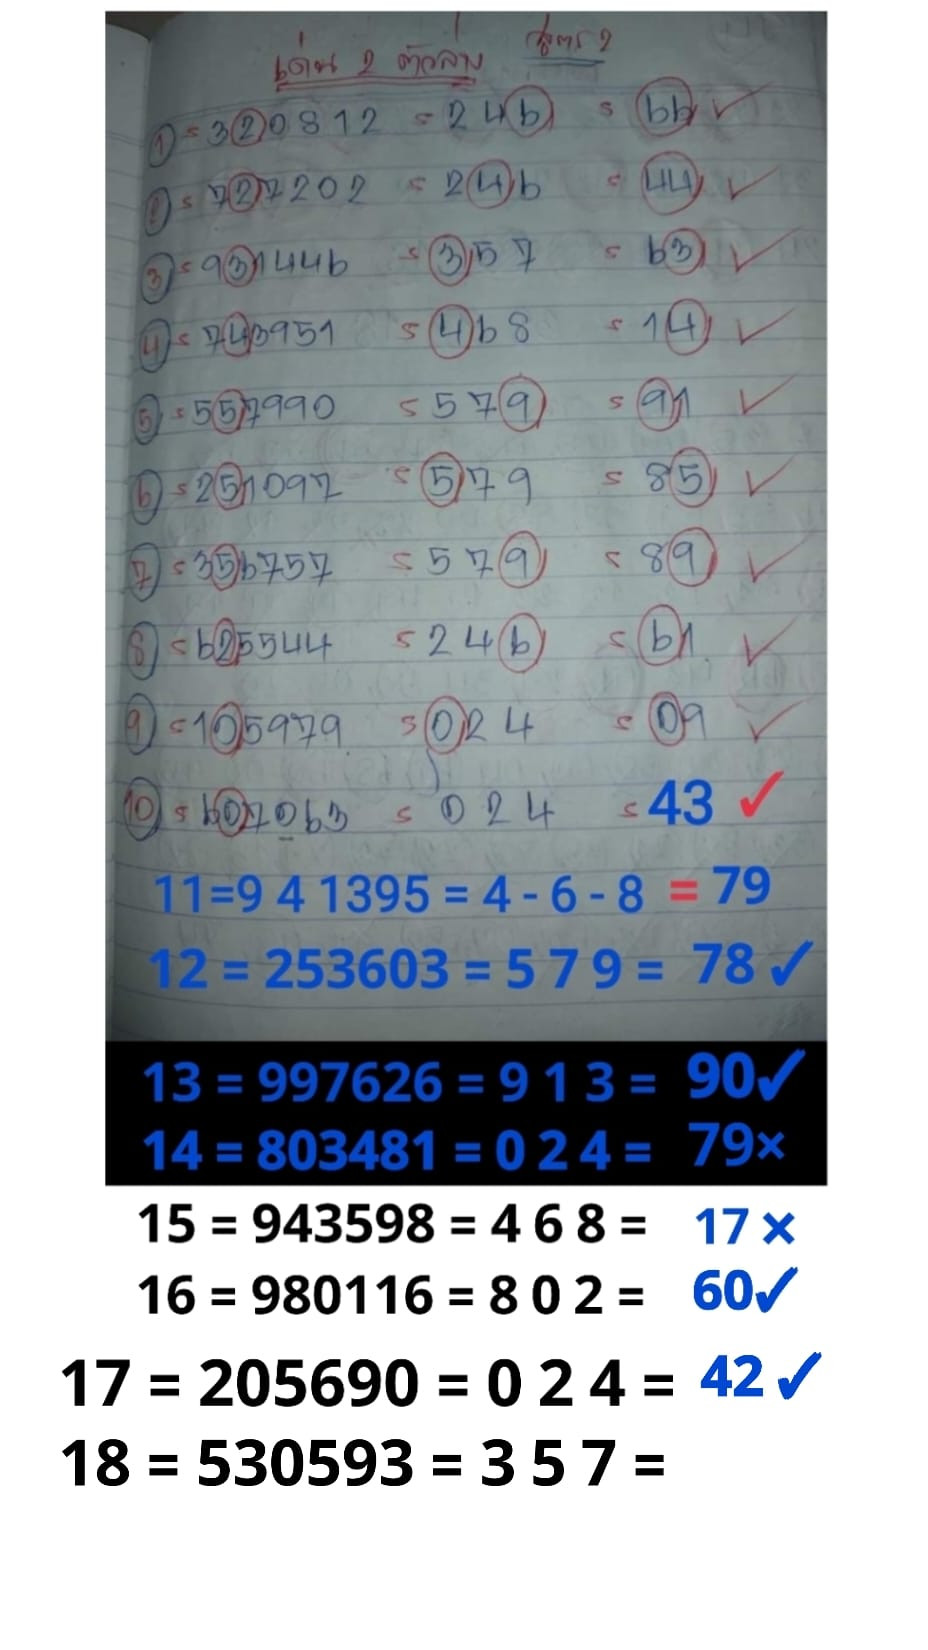 เด่น 2 ตัวล่าง สูตร 2
1) = 320812 = 246 = 66 ✓
2) = 727202 = 246 = 44 ✓
3) = 931446 = 357 = 63 ✓
4) = 743951 = 468 = 14 ✓
5) = 557990 = 579 = 91 ✓
6) = 251097 = 579 = 85 ✓
7) = 356757 = 579 = 89 ✓
8) = 625544 = 246 = 61 ✓
9) = 105979 = 024 = 09 ✓
10) = 607063 = 024 = 43 ✓
11=9 4 1395 = 4 - 6 - 8 = 79
12 = 253603 = 5 7 9 = 78 ✓
13 = 997626 = 9 1 3 = 90✓
14 = 803481 = 0 2 4 = 79×
15 = 943598 = 4 6 8 = 17 ×
16 = 980116 = 8 0 2 = 60✓
17 = 205690 = 0 2 4 = 42 ✓
18 = 530593 = 3 5 7 =